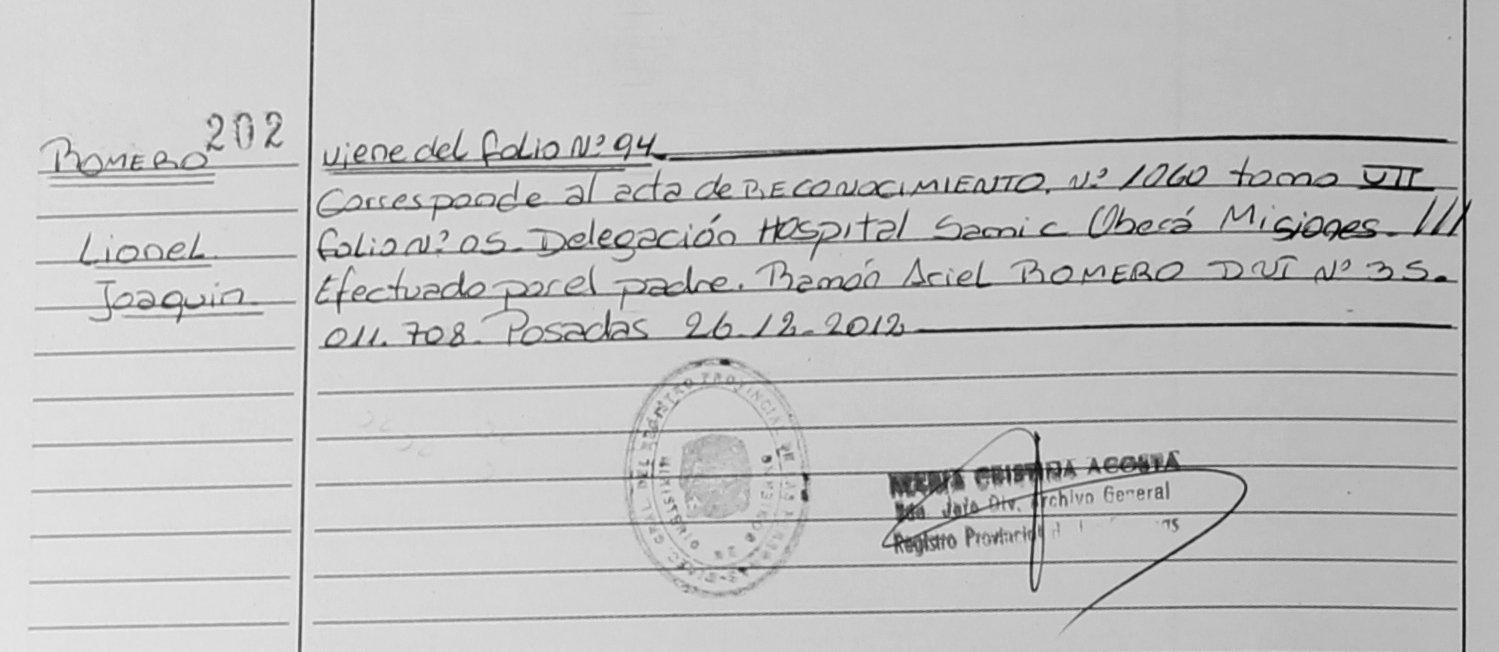 ROMERO 202
Lionel
Joaquin
viene del folio Nº 94
Corresponde al acta de RECONOCIMIENTO. Nº 1060 tomo VII
folio Nº 05. Delegación Hospital Samic Oberá Misiones. ///
Efectuado por el padre. Ramón Ariel ROMERO DNI Nº 35.
011.708. Posadas 26.12.2012
REGISTRO PROVINCIAL DE LAS PERSONAS
MINISTERIO DE GOBIERNO
MARIA CRISTINA ACOSTA
Jefe Div. Archivo General
Registro Provincial